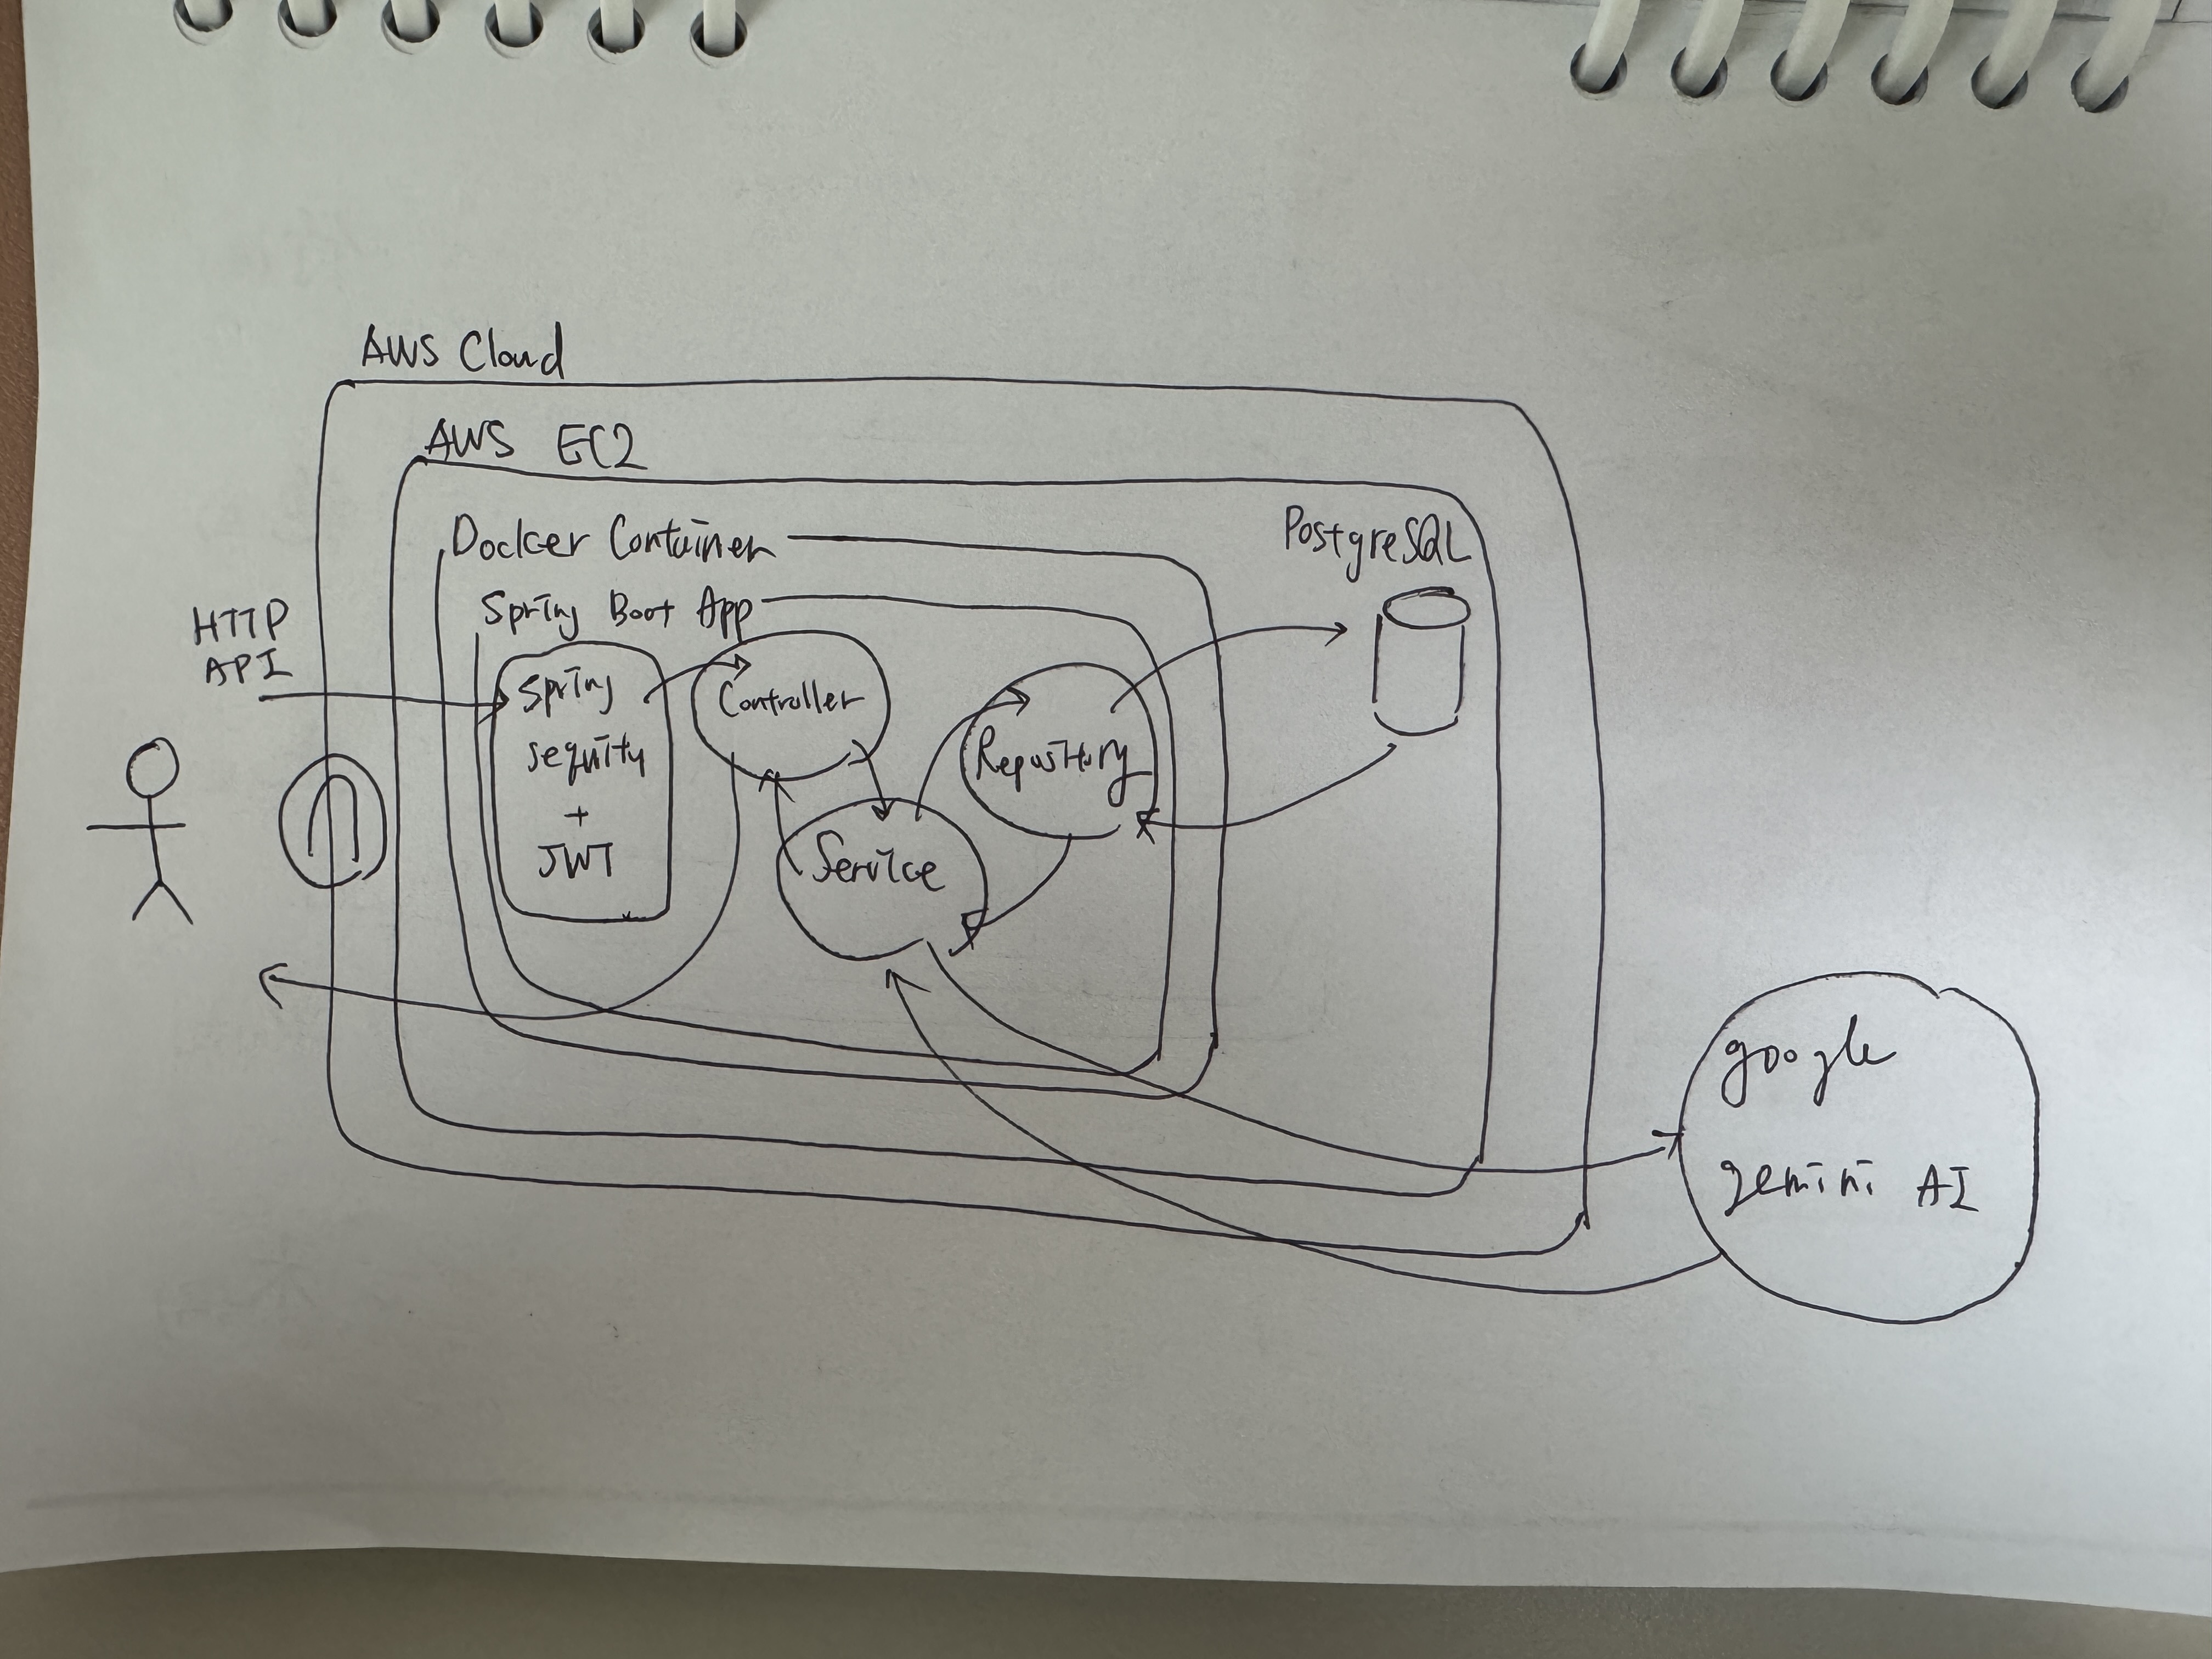 AWS Cloud
AWS EC2
Docker Container
PostgreSQL
Spring Boot App
HTTP
API
Spring
sequity
+
JWT
Controller
Repository
Service
google
gemini AI